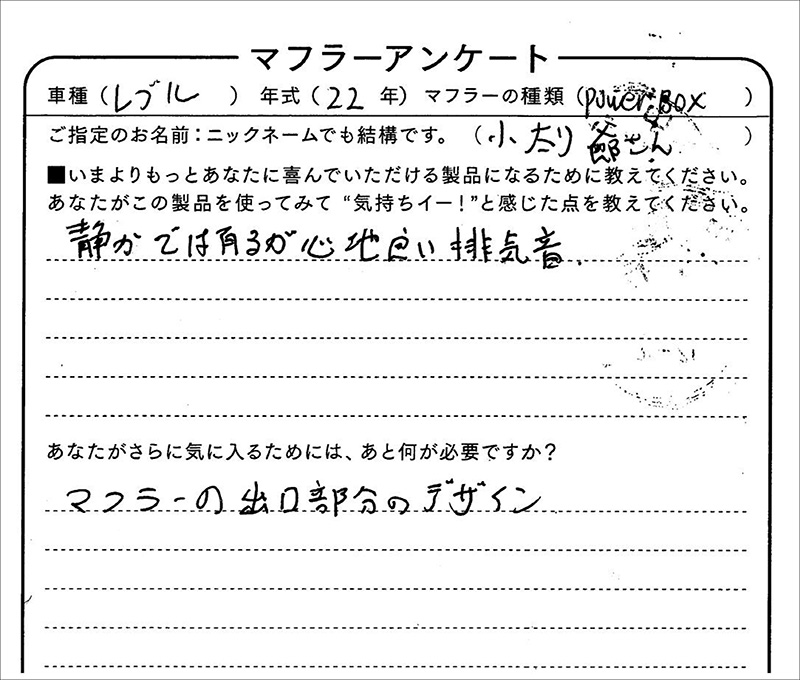 マフラーアンケート
車種（レブル）年式（22年）マフラーの種類（power BOX）
ご指定のお名前：ニックネームでも結構です。（小太り爺さん）
■いまよりもっとあなたに喜んでいただける製品になるために教えてください。
あなたがこの製品を使ってみて“気持ちイー！”と感じた点を教えてください。
静かでは有るが心地良い排気音.
あなたがさらに気に入るためには、あと何が必要ですか？
マフラーの出口部分のデザイン